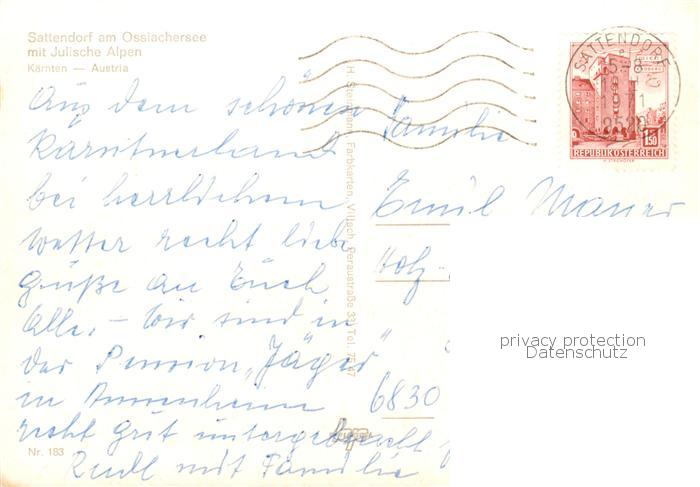 Sattendorf am Ossiachersee
mit Julische Alpen
Kärnten — Austria
Aus dem schönen
Kärntnerland
bei herrlichem
Wetter recht liebe
Grüße an Euch
Alle. – Wir sind in
der Pension „Jäger"
in Annenheim
recht gut untergebracht
Rudl mit Familie
Nr. 183
Farbkarten, Villach, Peraustraße 33, Tel.
SATTENDORF
REPUBLIK ÖSTERREICH
1.50
Familie
Emil Maurer
Holz-
6830
privacy protection
Datenschutz